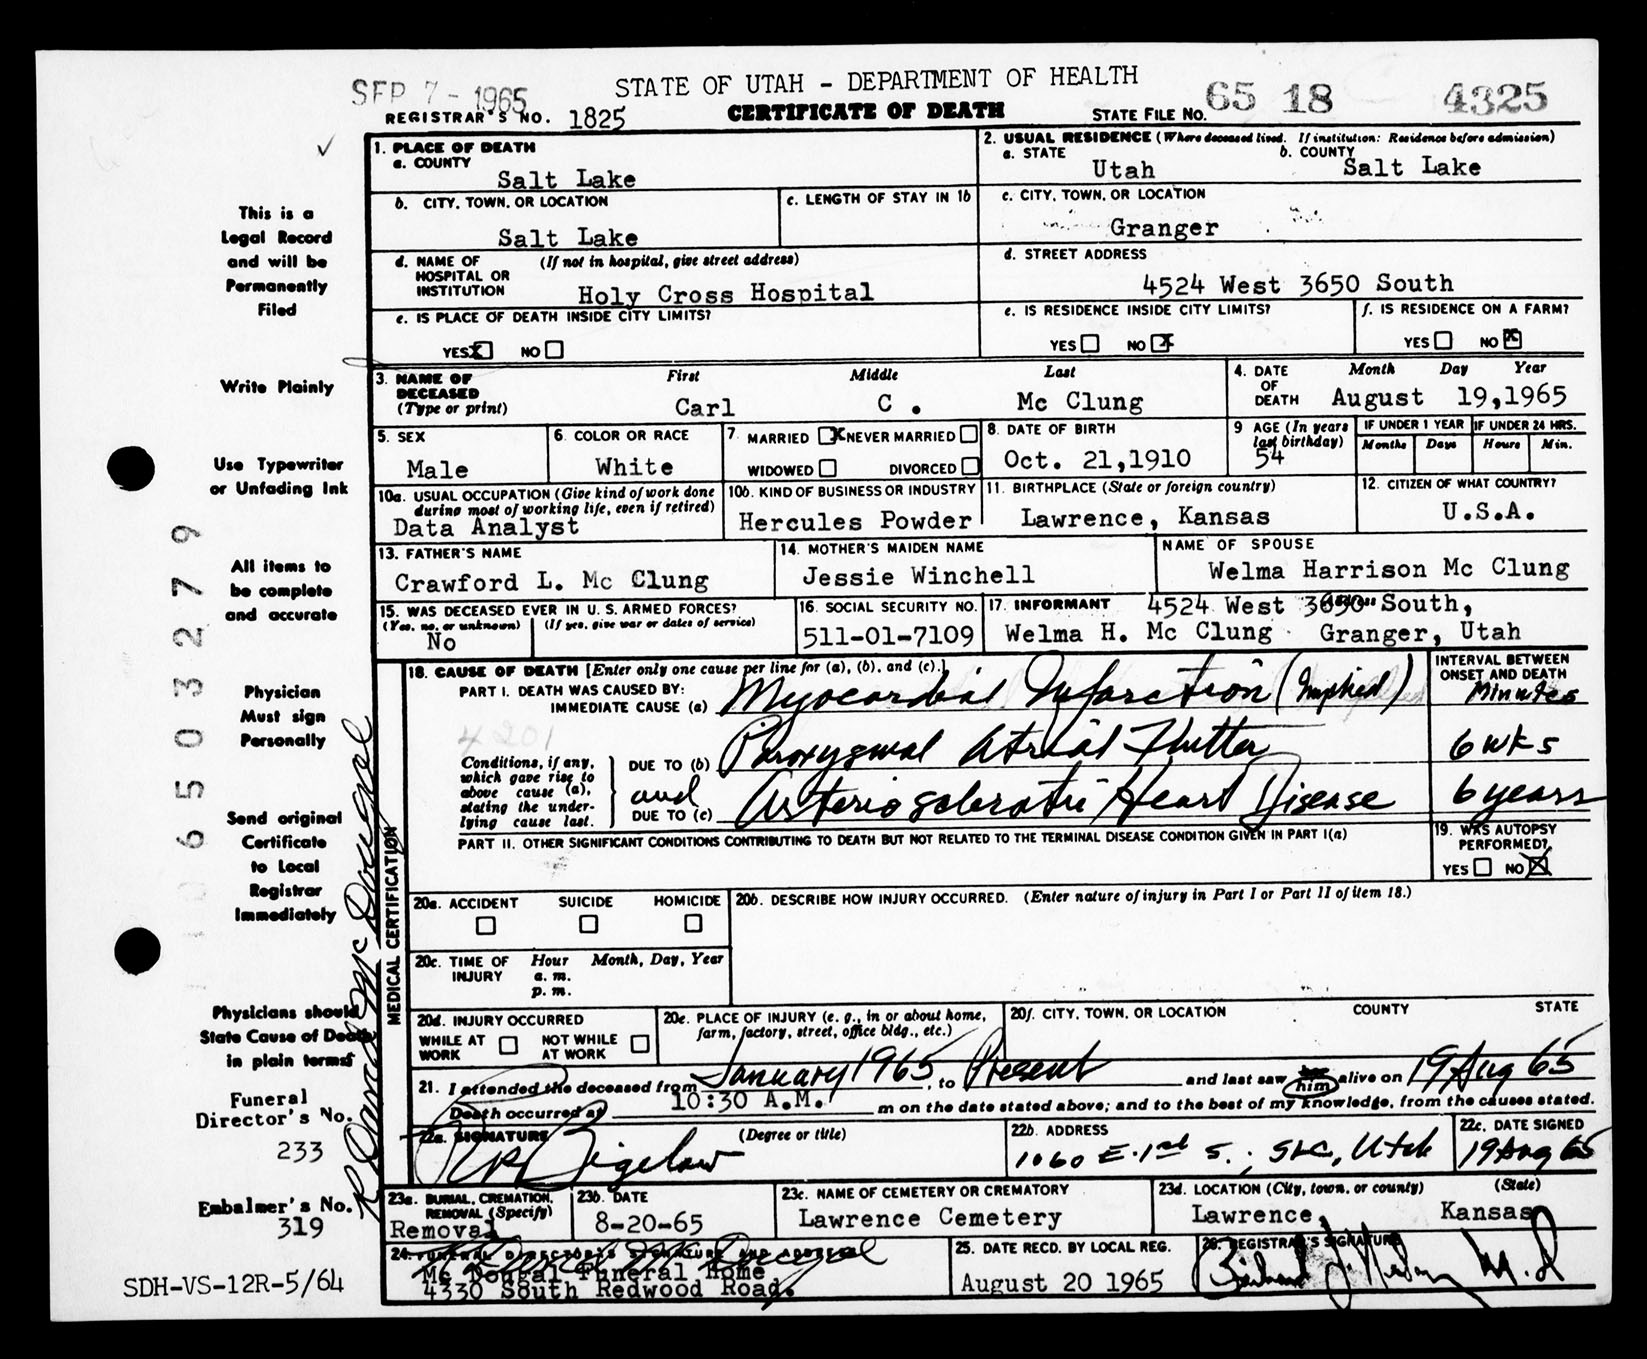 SEP 7 - 1965
STATE OF UTAH - DEPARTMENT OF HEALTH
65 18 4325
REGISTRAR'S NO. 1825
CERTIFICATE OF DEATH
STATE FILE NO.
This is a
Legal Record
and will be
Permanently
Filed
Write Plainly
Use Typewriter
or Unfading Ink
All items to
be complete
and accurate
Physician
Must sign
Personally
Send original
Certificate
to Local
Registrar
Immediately
Physicians should
State Cause of Death
in plain terms
Funeral
Director's No.
233
Embalmer's No.
319
SDH-VS-12R-5/64
0650 3279
R David McDougal
1. PLACE OF DEATH
a. COUNTY
Salt Lake
b. CITY, TOWN, OR LOCATION
Salt Lake
c. LENGTH OF STAY IN 1b
d. NAME OF HOSPITAL OR INSTITUTION
(If not in hospital, give street address)
Holy Cross Hospital
e. IS PLACE OF DEATH INSIDE CITY LIMITS?
YES X NO
2. USUAL RESIDENCE (Where deceased lived. If institution: Residence before admission)
a. STATE
Utah
b. COUNTY
Salt Lake
c. CITY, TOWN, OR LOCATION
Granger
d. STREET ADDRESS
4524 West 3650 South
e. IS RESIDENCE INSIDE CITY LIMITS?
YES NO X
f. IS RESIDENCE ON A FARM?
YES NO X
3. NAME OF DECEASED
(Type or print)
First Middle Last
Carl C. Mc Clung
4. DATE OF DEATH
Month Day Year
August 19,1965
5. SEX
Male
6. COLOR OR RACE
White
7. MARRIED X NEVER MARRIED
WIDOWED DIVORCED
8. DATE OF BIRTH
Oct. 21,1910
9 AGE (In years last birthday)
54
IF UNDER 1 YEAR
Months Days
IF UNDER 24 HRS.
Hours Min.
10a. USUAL OCCUPATION (Give kind of work done
during most of working life, even if retired)
Data Analyst
10b. KIND OF BUSINESS OR INDUSTRY
Hercules Powder
11. BIRTHPLACE (State or foreign country)
Lawrence, Kansas
12. CITIZEN OF WHAT COUNTRY?
U.S.A.
13. FATHER'S NAME
Crawford L. Mc Clung
14. MOTHER'S MAIDEN NAME
Jessie Winchell
NAME OF SPOUSE
Welma Harrison Mc Clung
15. WAS DECEASED EVER IN U. S. ARMED FORCES?
(Yes, no, or unknown) (If yes, give war or dates of service)
No
16. SOCIAL SECURITY NO.
511-01-7109
17. INFORMANT 4524 West 3650 South,
Welma H. Mc Clung Granger, Utah
MEDICAL CERTIFICATION
18. CAUSE OF DEATH [Enter only one cause per line for (a), (b), and (c).]
PART I. DEATH WAS CAUSED BY:
IMMEDIATE CAUSE (a) Myocardial Infarction (Implied)
4201
Conditions, if any,
which gave rise to
above cause (a),
stating the under-
lying cause last.
DUE TO (b) Paroxysmal Atrial Flutter
and
DUE TO (c) Arteriosclerotic Heart Disease
INTERVAL BETWEEN
ONSET AND DEATH
Minutes
6 wks
6 years
PART II. OTHER SIGNIFICANT CONDITIONS CONTRIBUTING TO DEATH BUT NOT RELATED TO THE TERMINAL DISEASE CONDITION GIVEN IN PART I(a)
19. WAS AUTOPSY
PERFORMED?
YES NO X
20a. ACCIDENT SUICIDE HOMICIDE
20b. DESCRIBE HOW INJURY OCCURRED. (Enter nature of injury in Part I or Part II of item 18.)
20c. TIME OF INJURY
Hour Month, Day, Year
a. m.
p. m.
20d. INJURY OCCURRED
WHILE AT WORK NOT WHILE AT WORK
20e. PLACE OF INJURY (e. g., in or about home,
farm, factory, street, office bldg., etc.)
20f. CITY, TOWN, OR LOCATION COUNTY STATE
21. I attended the deceased from January 1965, to Present and last saw him alive on 19 Aug 65
Death occurred at 10:30 A.M. m on the date stated above; and to the best of my knowledge, from the causes stated.
22a. SIGNATURE (Degree or title)
Bigelow
22b. ADDRESS
1060 E. 1st S., SLC, Utah
22c. DATE SIGNED
19 Aug 65
23a. BURIAL, CREMATION,
REMOVAL (Specify)
Removal
23b. DATE
8-20-65
23c. NAME OF CEMETERY OR CREMATORY
Lawrence Cemetery
23d. LOCATION (City, town, or county) (State)
Lawrence, Kansas
24. FUNERAL DIRECTOR'S SIGNATURE AND ADDRESS
R David McDougal
Mc Dougal Funeral Home
4330 South Redwood Road.
25. DATE RECD. BY LOCAL REG.
August 20 1965
26. REGISTRAR'S SIGNATURE
M.D